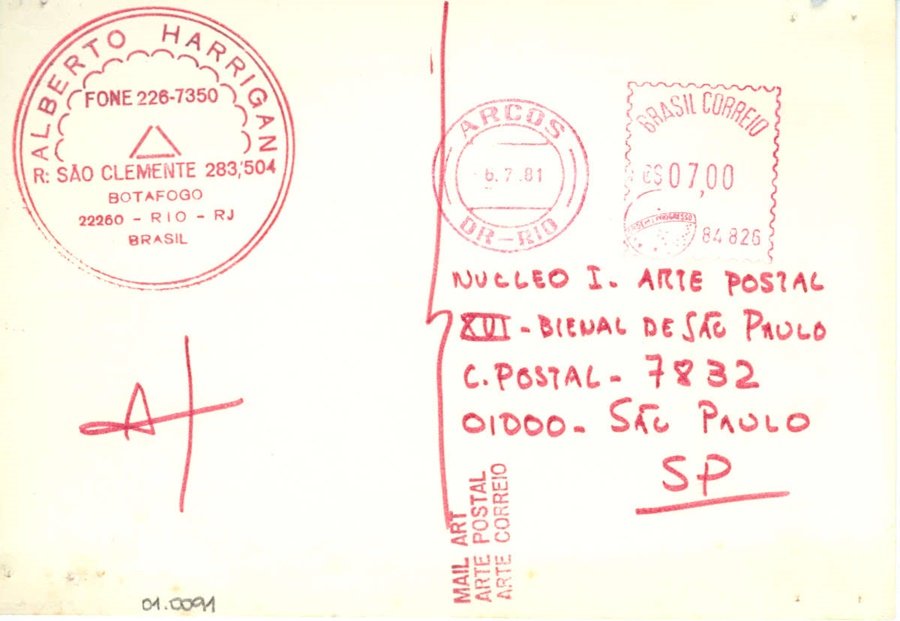 ALBERTO HARRIGAN
FONE 226-7350
R: SÃO CLEMENTE 283,'504
BOTAFOGO
22260 - RIO - RJ
BRASIL
ARCOS
6.7.81
DR-RIO
BRASIL CORREIO
C$07,00
84826
NUCLEO I. ARTE POSTAL
XVI - BIENAL DE SÃO PAULO
C. POSTAL - 7832
01000 - SÃO PAULO
SP
MAIL ART
ARTE POSTAL
ARTE CORREIO
01.0091